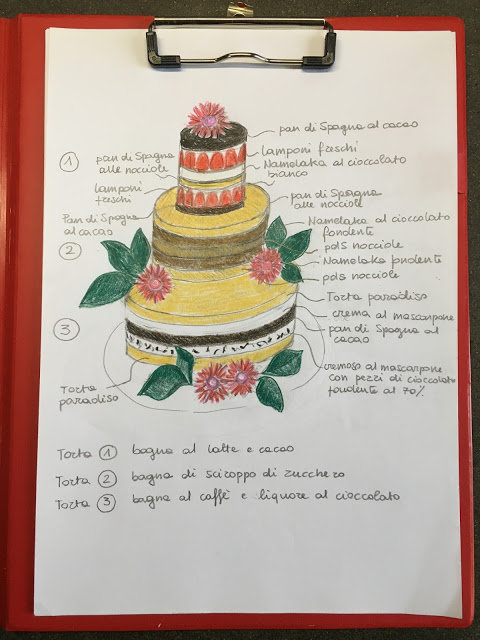 pan di Spagna al cacao
1
pan di Spagna
alle nocciole
lamponi freschi
Namelaka al cioccolato
bianco
lamponi
freschi
pan di Spagna
alle nocciole
Pan di Spagna
al cacao
Namelaka al cioccolato
fondente
2
pds nocciole
Namelaka fondente
pds nocciole
Torta paradiso
3
crema al mascarpone
pan di Spagna al
cacao
cremoso al mascarpone
con pezzi di cioccolato
fondente al 70%
Torta
paradiso
Torta 1 bagna al latte e cacao
Torta 2 bagna di sciroppo di zucchero
Torta 3 bagna al caffè e liquore al cioccolato